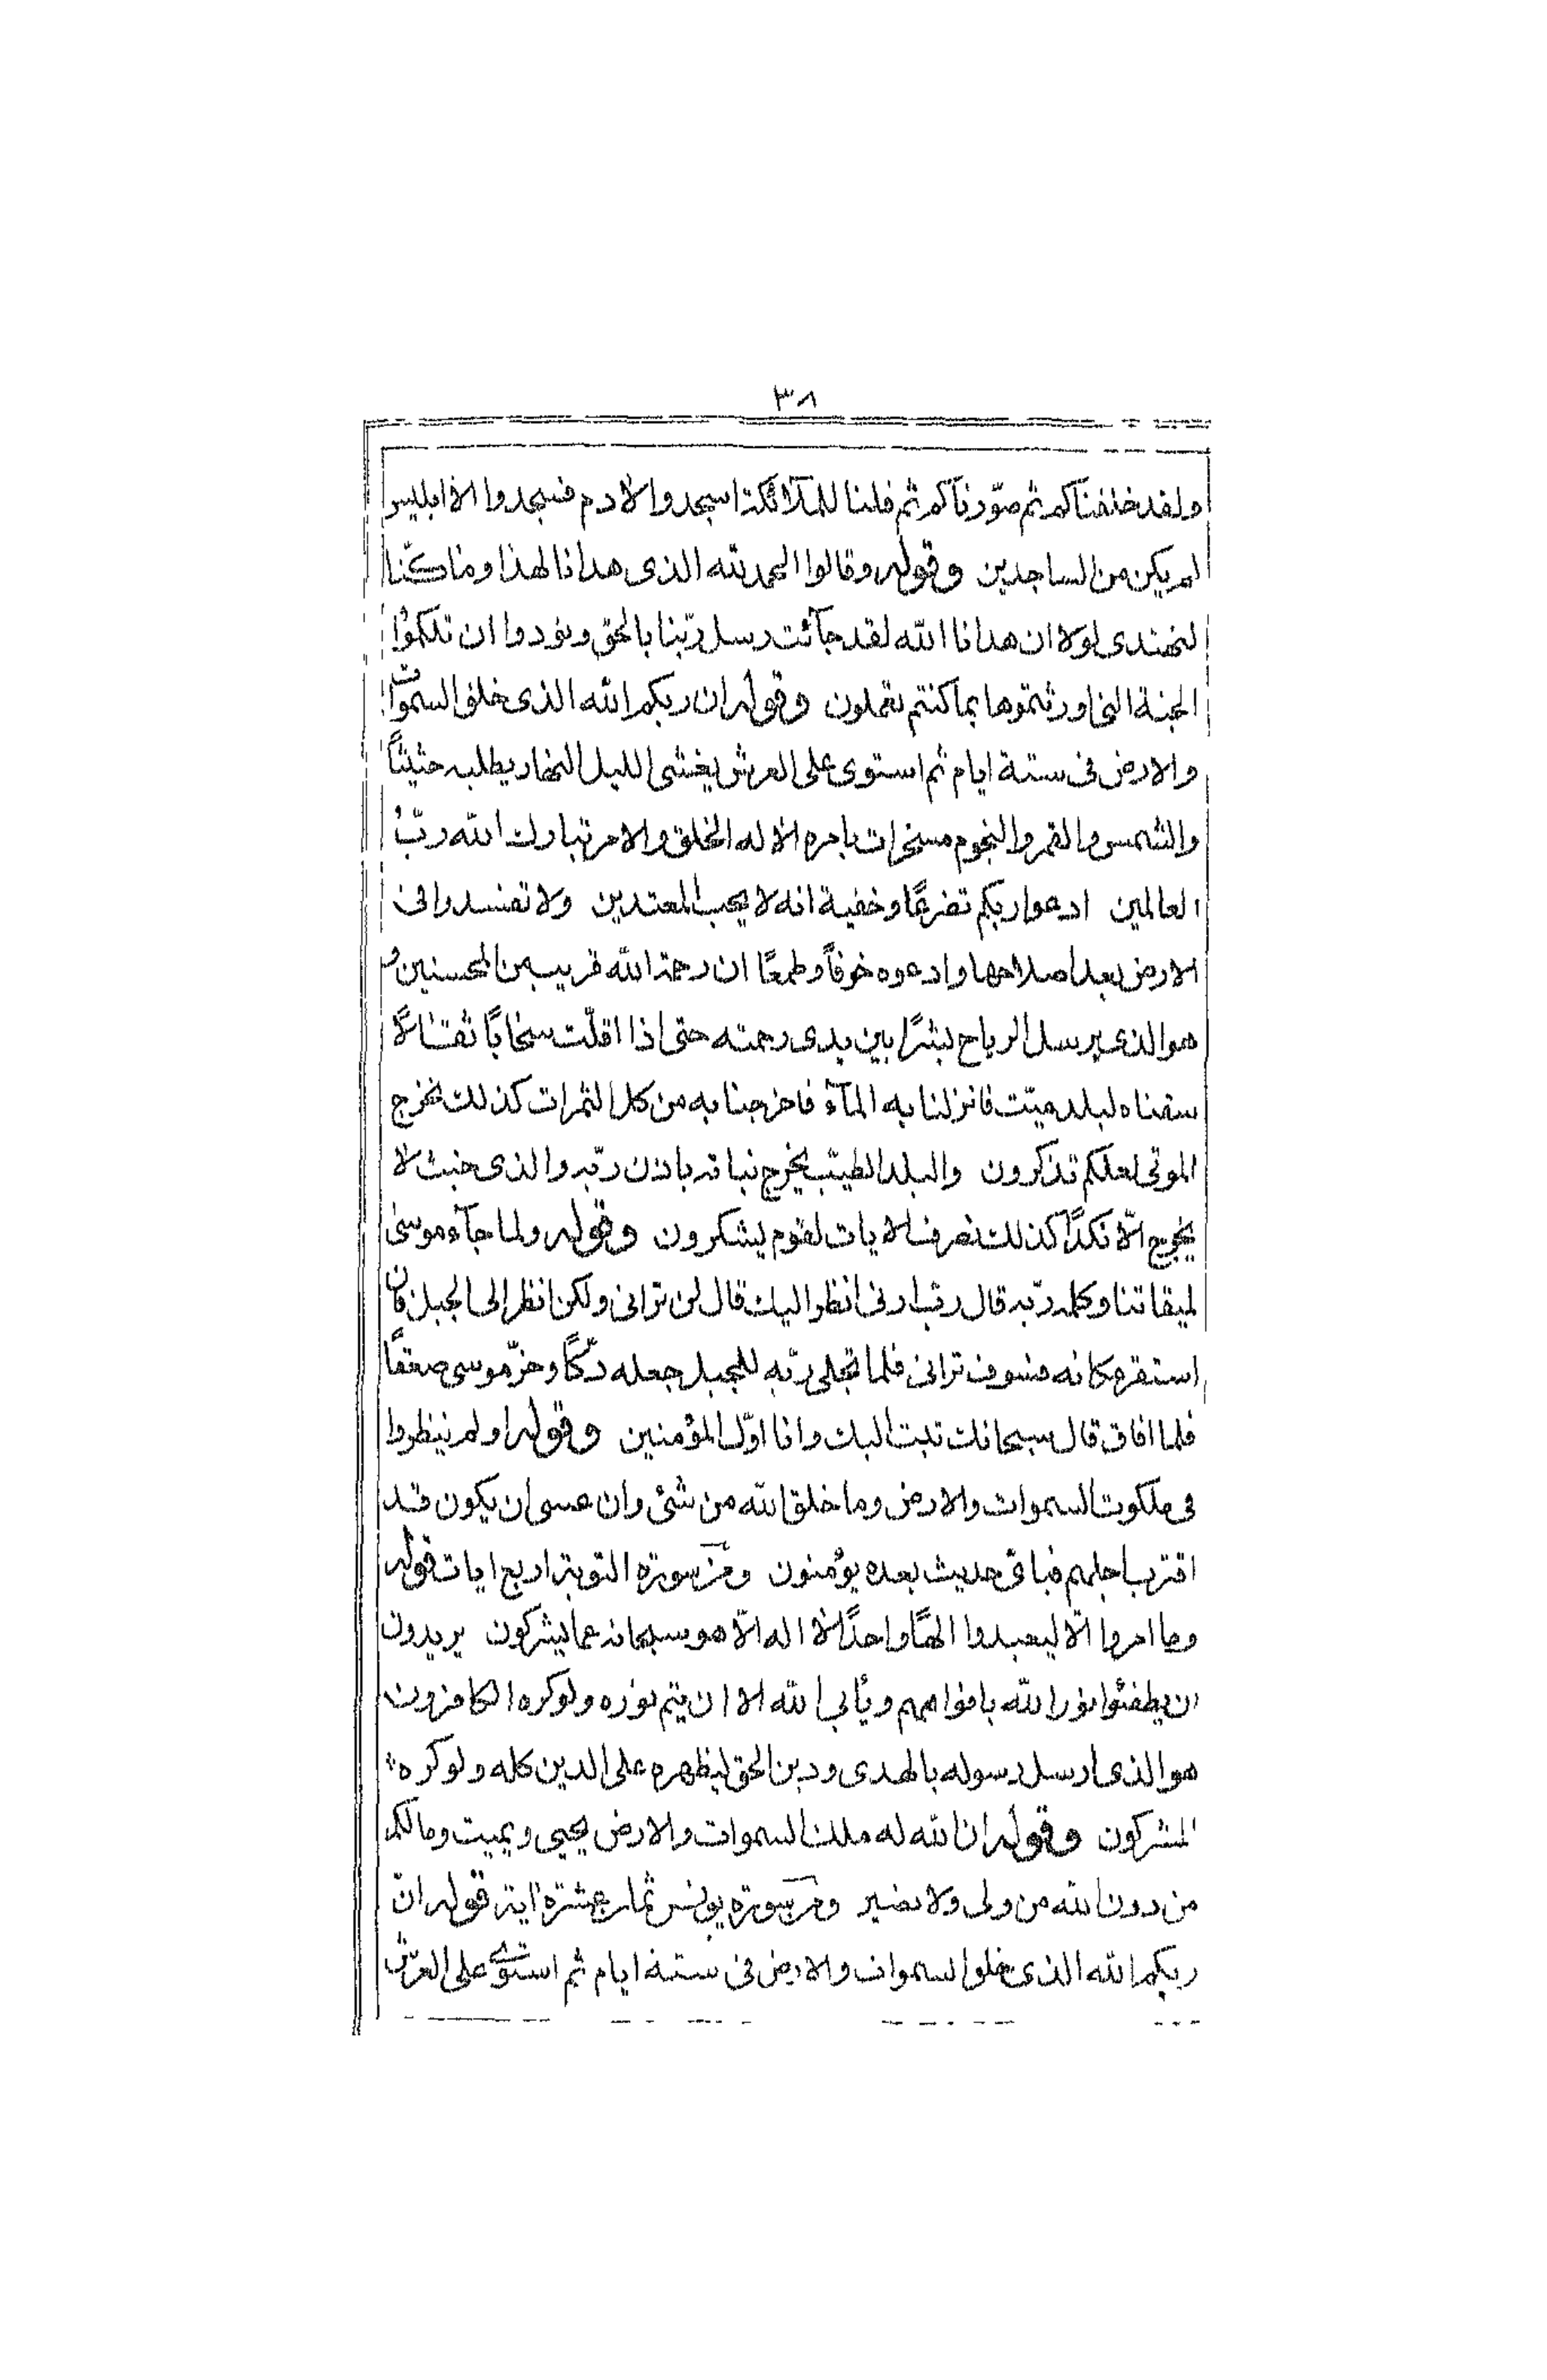 ٣٨
ولقد خلقناكم ثم صوّرناكم ثم قلنا للملآئكة اسجدوا لادم فسجدوا الا ابليس
لم يكن من الساجدين وقوله وقالوا الحمد لله الذى هدانا لهذا وما كنّا
لنهتدى لولا ان هدانا الله لقد جآئت رسل ربّنا بالحق ونودوا ان تلكموُا
الجنة التى اورثتموها بما كنتم تعملون وقوله ان ربكم الله الذى خلق السموات
والارض فى ستة ايام ثم استوى على العرش يغشى الليل النهار يطلبه حثيثاً
والشمس والقمر والنجوم مسخرات بامره الا له الخلق والامر تبارك الله ربّ
العالمين ادعوا ربكم تضرعًا وخفية انه لا يحب المعتدين ولا تفسدوا فى
الارض بعد اصلاحها وادعوه خوفاً وطمعًا ان رحمة الله قريب من المحسنين و
هو الذى يرسل الرياح بشرًا بين يدى رحمته حتى اذا اقلّت سحابًا ثقالًا
سقناه لبلد ميّت فانزلنا به المآء فاخرجنا به من كل الثمرات كذلك نخرج
الموتى لعلكم تذكرون والبلد الطيّب يخرج نباته باذن ربّه والذى خبث لا
يخرج الّا نكدًا كذلك نصرف الايات لقوم يشكرون وقوله ولما جآء موسى
لميقاتنا وكلمه ربّه قال ربّ ارنى انظر اليك قال لن ترانى ولكن انظر الى الجبل فان
استقر مكانه فسوف ترانى فلما تجلى ربّه للجبل جعله دكّاً وخرّ موسى صعقاً
فلما افاق قال سبحانك تبت اليك وانا اوّل المؤمنين وقوله اولم ينظروا
فى ملكوت السموات والارض وما خلق الله من شئ وان عسى ان يكون قد
اقترب اجلهم فباىّ حديث بعده يؤمنون ومن سورة التوبة اربع ايات قوله
وما امروا الّا ليعبدوا الهًا واحدًا لا اله الّا هو سبحانه عما يشركون يريدون
ان يطفئوا نور الله بافواههم ويأبى الله الا ان يتم نوره ولو كره الكافرون
هو الذى ارسل رسوله بالهدى ودين الحق ليظهره على الدين كله ولو كره
المشركون وقوله ان الله له ملك السموات والارض يحيى ويميت وما لكم
من دون الله من ولى ولا نصير ومن سورة يونس ثمان عشرة اية قوله انّ
ربكم الله الذى خلق السموات والارض فى ستة ايام ثم استوى على العرش